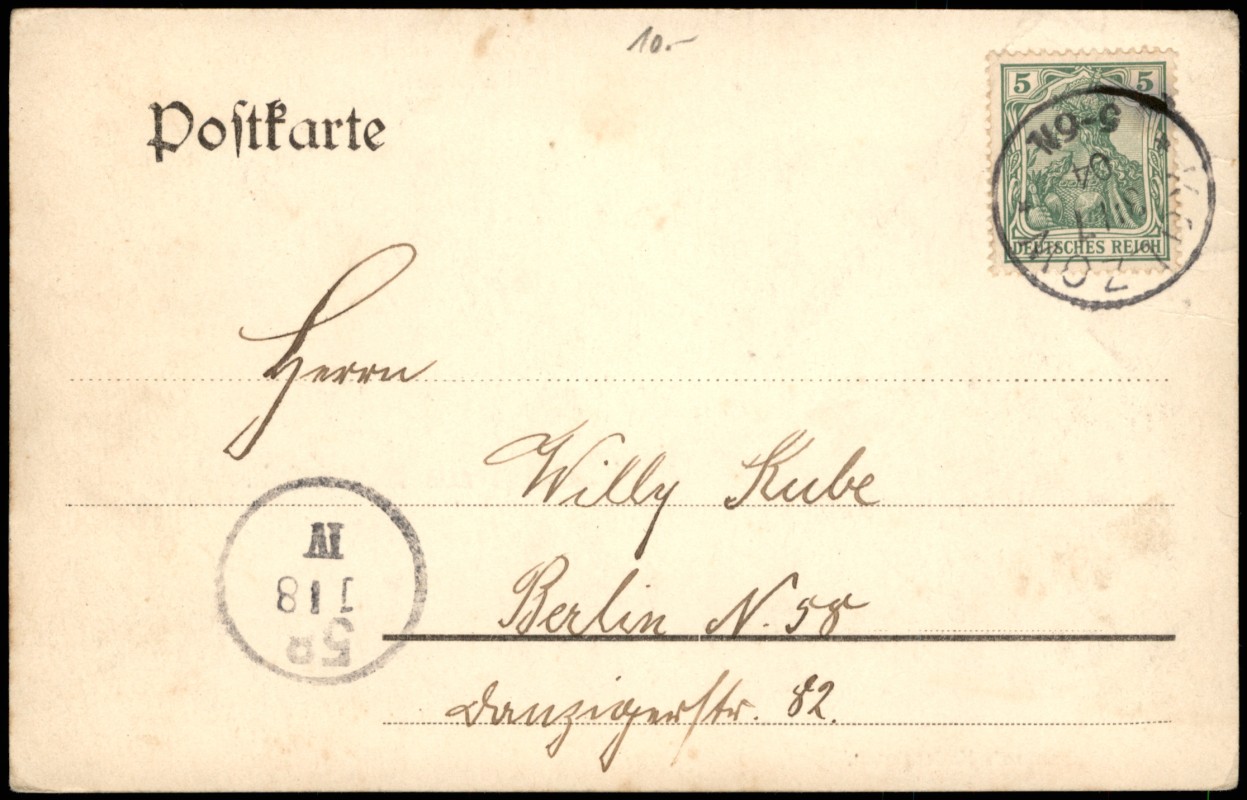 10.-
Poſtkarte
5 5
DEUTSCHES REICH
5-6N.
04
Herrn
Willy Kube
Berlin N. 58
Danzigerſtr. 82.
5a
1 8
IV